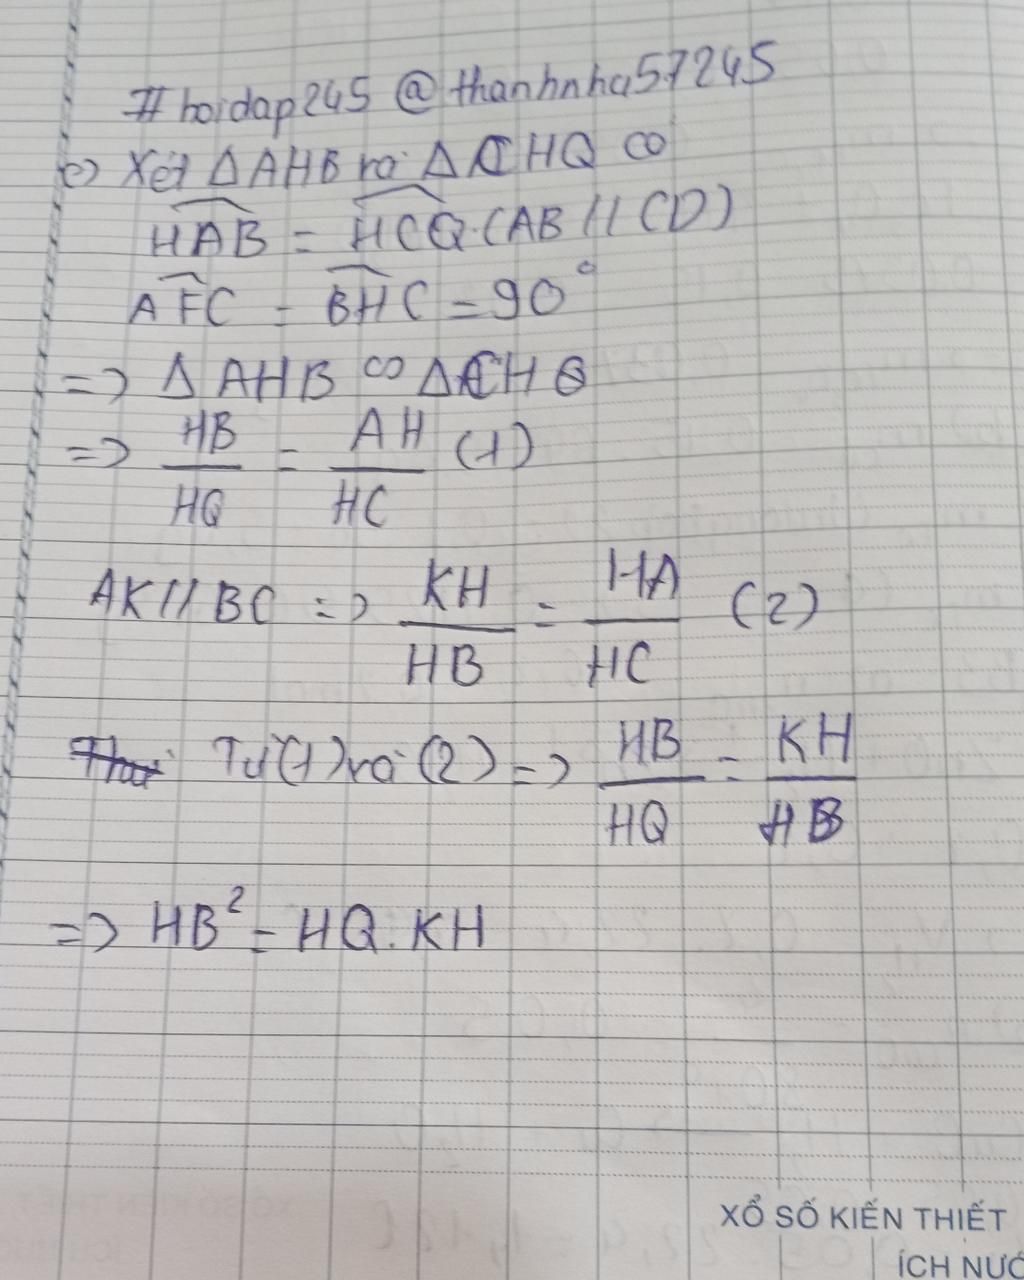 #hoidap245 @thanhnha57245
c) Xét ΔAHB và ΔCHQ có
HAB = HCQ (AB // CD)
AFC = BHC = 90°
=> Δ AHB ∞ ΔCHQ
=> HB/HQ = AH/HC (1)
AK // BC => KH/HB = HA/HC (2)
Từ (1) và (2) => HB/HQ = KH/HB
=> HB² = HQ . KH
XỔ SỐ KIẾN THIẾT
ÍCH NƯỚ